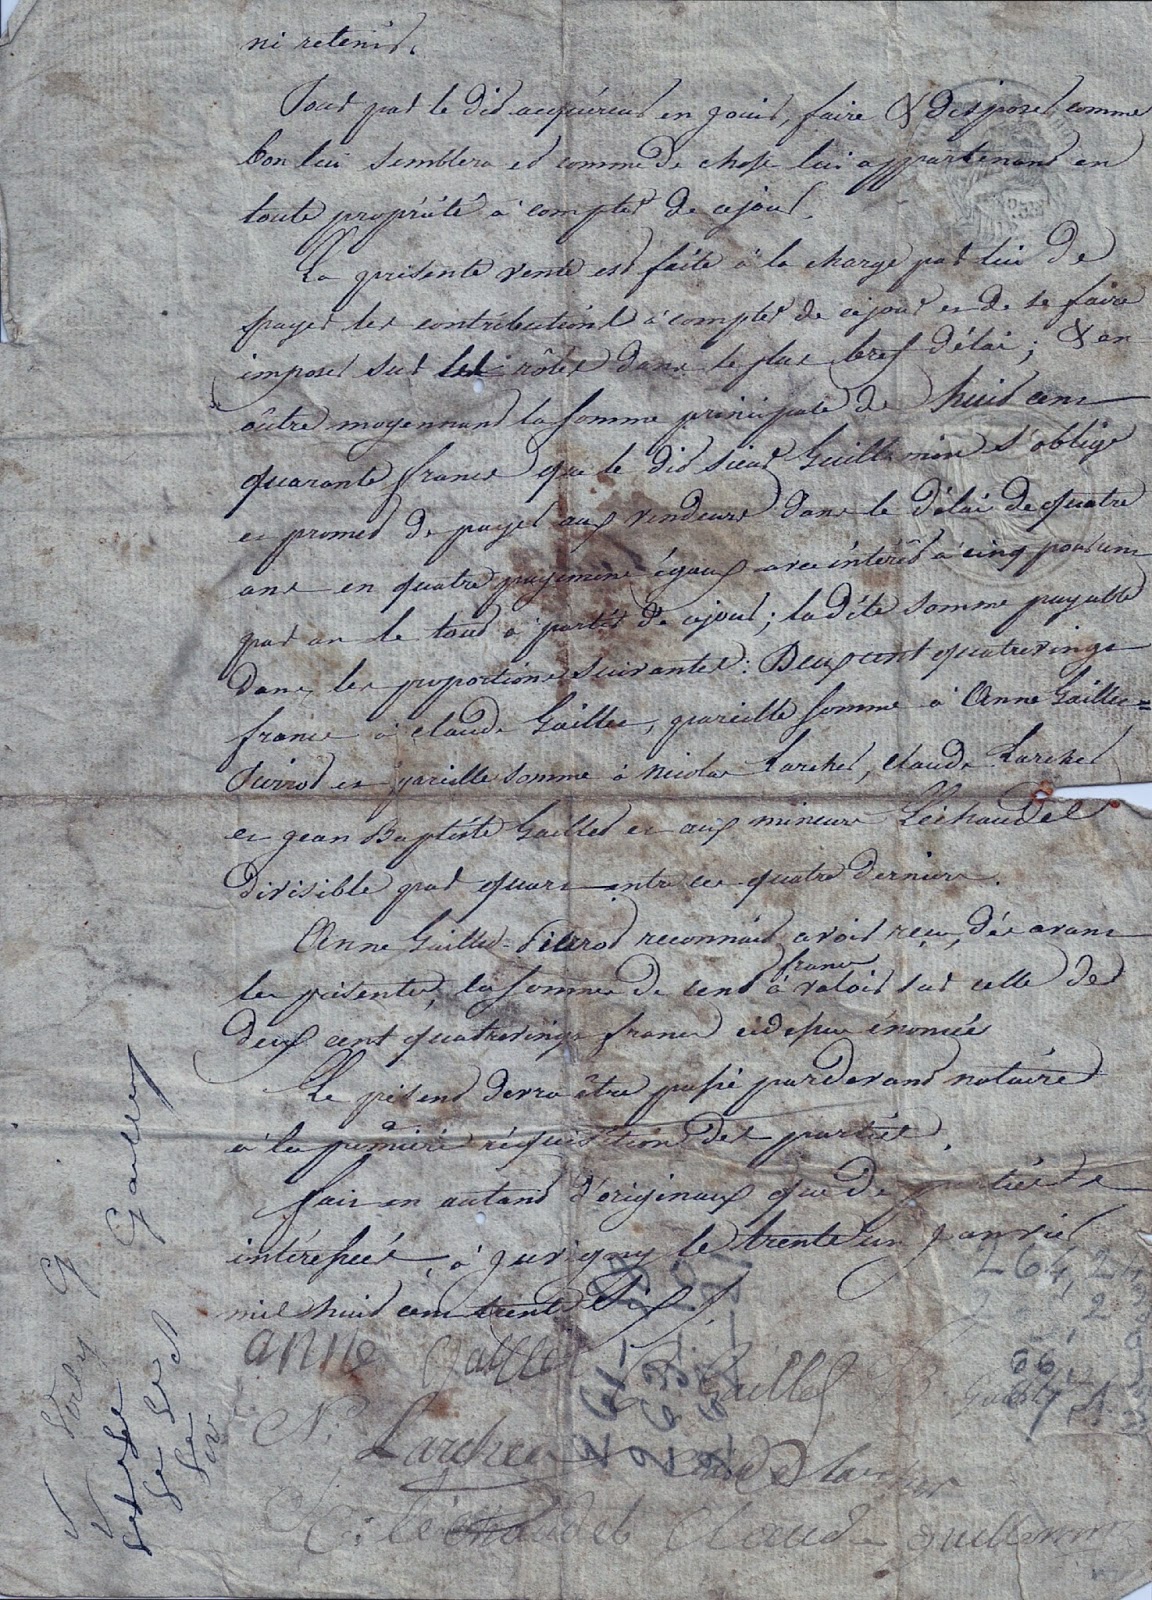 ni retenir.
Pour par le dit acquéreur en jouir, faire & disposer comme
bon lui semblera et comme de chose lui appartenant en
toute propriété à compter de ce jour.
La présente vente est faite à la charge par lui de
payer les contributions à compter de ce jour et de se faire
imposer sur les rôles dans le plus bref délai ; & en
oûtre moyennant la somme principale de huit cent
quarante francs que le dit sieur Guillemin s'oblige
et promet de payer aux vendeurs dans le délai de quatre
ans en quatre payemens égaux avec intérêt à cinq pour un
par an le tout à partir de ce jour ; la dite somme payable
dans les proportions suivantes : Deux cent quatrevingt
francs à Claude Gaillet, pareille somme à Anne Gaillet=
Pierrot et pareille somme à Nicolas Larcher, Claude Larcher
et jean Baptiste Gaillet et aux mineurs Léchaudel
divisible par quart entre ces quatre derniers.
Anne Gaillet=Pierrot reconnait avoir reçu, dès avant
les présentes, la somme de cent francs à valoir sur celle de
deux cent quatrevingt francs cidessus énoncée
Le présent devra être passé pardevant notaire
à la première réquisition des parties.
Fait en autant d'originaux que de parties
intéressées, à juvigny le trente un janvier
mil huit cent trente Six
anne Gaillet Gaillet
N. Larcher Claude Larcher
léchaudel Claude Guillemin
Gaillet
264,24
2 2
66